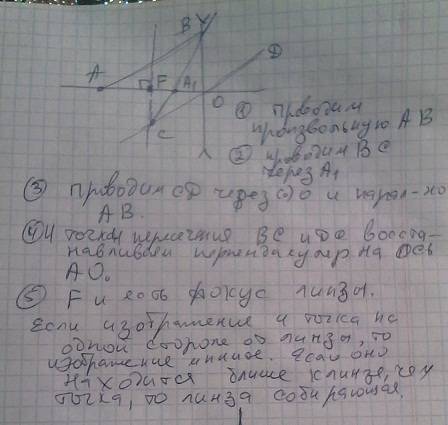 B
A
F
A₁
O
D
C
① Проводим
произвольную AB
② проводим BC
через A₁
③ Проводим CD через (·) O и парал-но
AB.
④ Из точки пересечения BC и DC восста-
навливаем перпендикуляр на ось
AO.
⑤ F и есть фокус линзы.
Если изображение и точка на
одной стороне от линзы, то
изображение мнимое. Если оно
находится ближе к линзе, чем
точка, то линза собирающая.